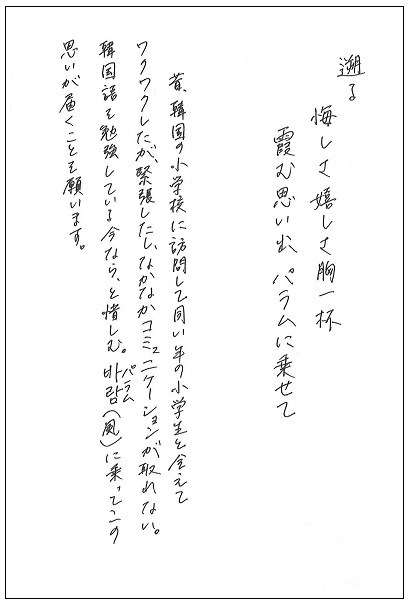 遡る
悔しさ嬉しさ胸一杯
霞む思い出、パラムに乗せて
昔、韓国の小学校に訪問して同い年の小学生と会えて
ワクワクしたが、緊張したし、なかなかコミュニケーションが取れない。
韓国語を勉強している今なら、と惜しむ。바람(パラム)(風)に乗ってこの
思いが届くことを願います。